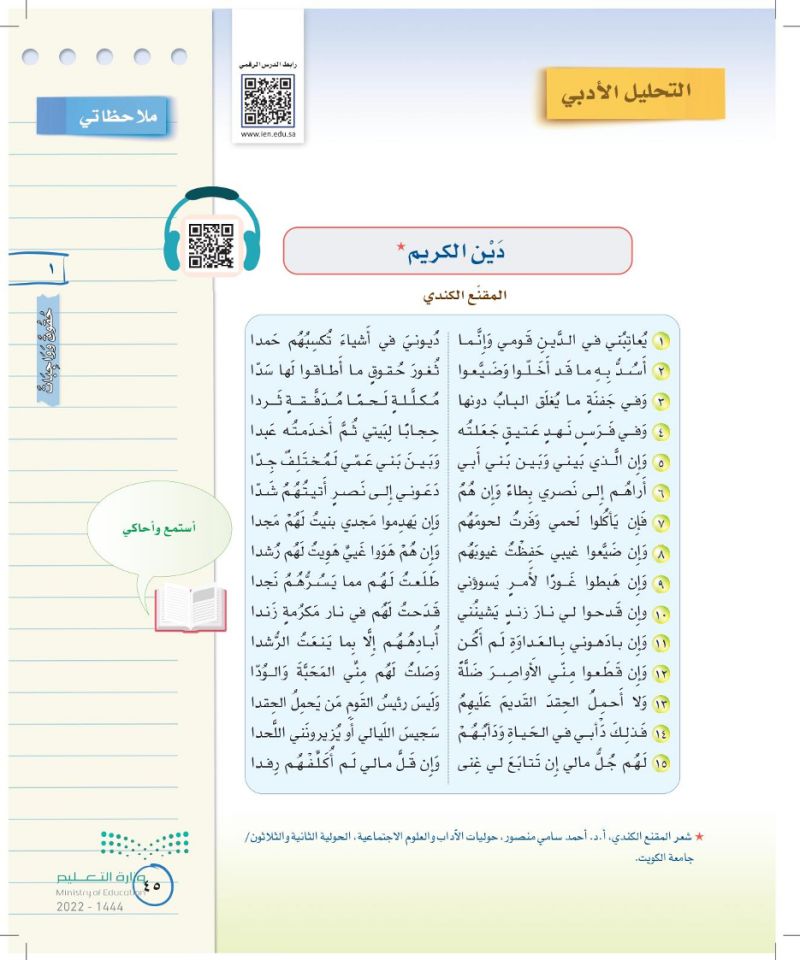 رابط الدرس الرقمي
www.ien.edu.sa
التحليل الأدبي
ملاحظاتي
دَيْن الكريم*
المقنّع الكندي
١ يُعاتِبُني في الدَّينِ قَومي وَإِنَّما دُيونيَ في أَشياءَ تُكسِبُهُم حَمدا
٢ أَسُدُّ بِهِ ما قَد أَخَلّوا وَضَيَّعوا ثُغورَ حُقوقٍ ما أَطاقوا لَها سَدّا
٣ وَفي جَفنَةٍ ما يُغلَق البابُ دونها مُكلَّلةٍ لَحمًا مُدَفَّقةٍ ثَردا
٤ وَفي فَرَسٍ نَهدٍ عَتيقٍ جَعَلتُه حِجابًا لِبَيتي ثُمَّ أَخدَمتُه عَبدا
٥ وَإِن الَّذي بَيني وَبين بَني أَبي وَبَينَ بَني عَمّي لَمُختَلِفٌ جِدّا
٦ أَراهُم إلى نَصري بِطاءً وَإن هُمُ دَعَوني إلى نَصرٍ أَتيتُهُم شَدّا
٧ فَإِن يَأكُلوا لَحمي وَفَرتُ لحومَهُم وَإن يَهدِموا مَجدي بنيتُ لَهُمْ مَجدا
٨ وَإِن ضَيَّعوا غيبي حَفِظتُ غيوبَهُم وَإن هُمْ هَوَوا غَييِّ هَوِيتُ لَهُم رُشدا
٩ وَإن هَبطوا غَورًا لأَمرٍ يَسوؤني طَلَعتُ لَهُم مما يَسُرُّهُمُ نَجدا
١٠ وإن قَدحوا لي نارَ زندٍ يَشينُني قَدَحتُ لَهُم في نار مَكرُمةٍ زَندا
١١ وَإن بادَهوني بِالعَداوَةِ لَم أَكُن أُبادِهُهُم إِلّا بِما يَنعَتُ الرُّشدا
١٢ وَإن قَطَعوا مِنّي الأَواصِرَ ضَلَّةً وَصَلتُ لَهُم مِنّي المَحَبَّةَ وَالوُدّا
١٣ وَلا أَحمِلُ الحِقدَ القَديمَ عَلَيهِمُ وَلَيسَ رئيسُ القَومِ مَن يَحمِلُ الحِقدا
١٤ فَذلِكَ دَأبي في الحَياةِ وَدَأبُهُمْ سَجيسَ اللَيالي أَو يُزيرونَني اللَحدا
١٥ لَهُم جُلُّ مالي إن تَتابَعَ لي غِنى وَإن قَلَّ مالي لَم أُكَلِّفْهُم رِفدا
١
حُقُوقٌ وَوَاجِبَاتٌ
أستمع وأحاكي
* شعر المقنع الكندي، أ.د. أحمد سامي منصور، حوليات الآداب والعلوم الاجتماعية، الحولية الثانية والثلاثون/
جامعة الكويت.
وزارة التعليم
Ministry of Education
2022 - 1444
٤٥